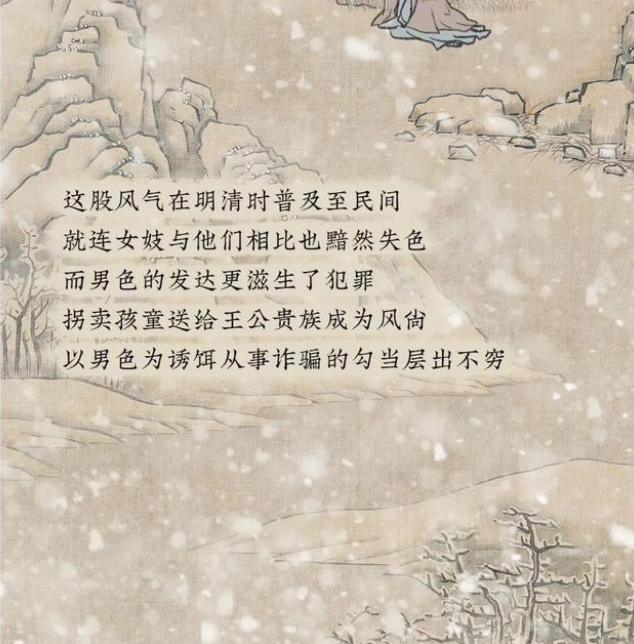 这股风气在明清时普及至民间
就连女妓与他们相比也黯然失色
而男色的发达更滋生了犯罪
拐卖孩童送给王公贵族成为风尚
以男色为诱饵从事诈骗的勾当层出不穷